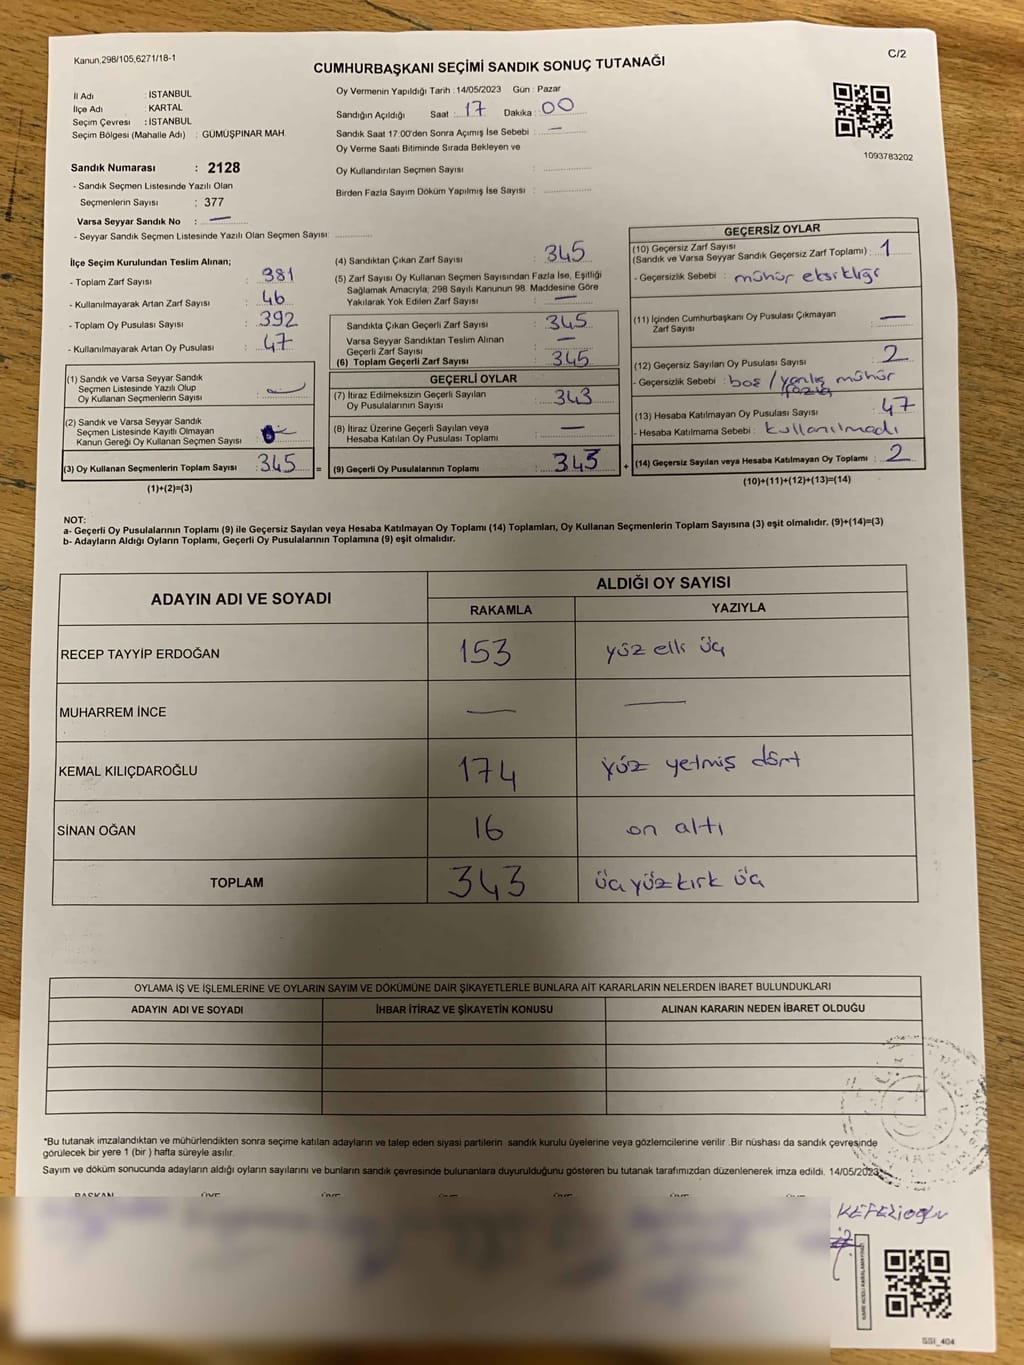 Kanun,298/105,6271/18-1
C/2
CUMHURBAŞKANI SEÇİMİ SANDIK SONUÇ TUTANAĞI
İl Adı : İSTANBUL
İlçe Adı : KARTAL
Seçim Çevresi : İSTANBUL
Seçim Bölgesi (Mahalle Adı) : GÜMÜŞPINAR MAH.
Oy Vermenin Yapıldığı Tarih : 14/05/2023 Gün : Pazar
Sandığın Açıldığı Saat : 17 Dakika : 00
Sandık Saat 17:00'den Sonra Açımış İse Sebebi : —
Oy Verme Saati Bitiminde Sırada Bekleyen ve
Oy Kullandırılan Seçmen Sayısı :
Birden Fazla Sayım Döküm Yapılmış İse Sayısı :
1093783202
Sandık Numarası : 2128
- Sandık Seçmen Listesinde Yazılı Olan
Seçmenlerin Sayısı : 377
Varsa Seyyar Sandık No : —
- Seyyar Sandık Seçmen Listesinde Yazılı Olan Seçmen Sayısı:
İlçe Seçim Kurulundan Teslim Alınan;
- Toplam Zarf Sayısı : 381
- Kullanılmayarak Artan Zarf Sayısı : 46
- Toplam Oy Pusulası Sayısı : 392
- Kullanılmayarak Artan Oy Pusulası : 47
(1) Sandık ve Varsa Seyyar Sandık
Seçmen Listesinde Yazılı Olup
Oy Kullanan Seçmenlerin Sayısı :
(2) Sandık ve Varsa Seyyar Sandık
Seçmen Listesinde Kayıtlı Olmayan
Kanun Gereği Oy Kullanan Seçmen Sayısı :
(3) Oy Kullanan Seçmenlerin Toplam Sayısı : 345 =
(1)+(2)=(3)
(4) Sandıktan Çıkan Zarf Sayısı : 345
(5) Zarf Sayısı Oy Kullanan Seçmen Sayısından Fazla İse, Eşitliği
Sağlamak Amacıyla; 298 Sayılı Kanunun 98. Maddesine Göre
Yakılarak Yok Edilen Zarf Sayısı : —
Sandıkta Çıkan Geçerli Zarf Sayısı : 345
Varsa Seyyar Sandıktan Teslim Alınan
Geçerli Zarf Sayısı : —
(6) Toplam Geçerli Zarf Sayısı : 345
GEÇERLİ OYLAR
(7) İtiraz Edilmeksizin Geçerli Sayılan
Oy Pusulalarının Sayısı : 343
(8) İtiraz Üzerine Geçerli Sayılan veya
Hesaba Katılan Oy Pusulası Toplamı : —
(9) Geçerli Oy Pusulalarının Toplamı : 343 +
GEÇERSİZ OYLAR
(10) Geçersiz Zarf Sayısı
(Sandık ve Varsa Seyyar Sandık Geçersiz Zarf Toplamı) : 1
- Geçersizlik Sebebi : mühür eksikliği
(11) İçinden Cumhurbaşkanı Oy Pusulası Çıkmayan
Zarf Sayısı : —
(12) Geçersiz Sayılan Oy Pusulası Sayısı : 2
- Geçersizlik Sebebi : boş / yanlış mühür
fazla
(13) Hesaba Katılmayan Oy Pusulası Sayısı : 47
- Hesaba Katılmama Sebebi : kullanılmadı
(14) Geçersiz Sayılan veya Hesaba Katılmayan Oy Toplamı : 2
(10)+(11)+(12)+(13)=(14)
NOT:
a- Geçerli Oy Pusulalarının Toplamı (9) ile Geçersiz Sayılan veya Hesaba Katılmayan Oy Toplamı (14) Toplamları, Oy Kullanan Seçmenlerin Toplam Sayısına (3) eşit olmalıdır. (9)+(14)=(3)
b- Adayların Aldığı Oyların Toplamı, Geçerli Oy Pusulalarının Toplamına (9) eşit olmalıdır.
ADAYIN ADI VE SOYADI
ALDIĞI OY SAYISI
RAKAMLA YAZIYLA
RECEP TAYYİP ERDOĞAN 153 yüz elli üç
MUHARREM İNCE — —
KEMAL KILIÇDAROĞLU 174 yüz yetmiş dört
SİNAN OĞAN 16 on altı
TOPLAM 343 üç yüz kırk üç
OYLAMA İŞ VE İŞLEMLERİNE VE OYLARIN SAYIM VE DÖKÜMÜNE DAİR ŞİKAYETLERLE BUNLARA AİT KARARLARIN NELERDEN İBARET BULUNDUKLARI
ADAYIN ADI VE SOYADI İHBAR İTİRAZ VE ŞİKAYETİN KONUSU ALINAN KARARIN NEDEN İBARET OLDUĞU
*Bu tutanak imzalandıktan ve mühürlendikten sonra seçime katılan adayların ve talep eden siyasi partilerin sandık kurulu üyelerine veya gözlemcilerine verilir .Bir nüshası da sandık çevresinde
görülecek bir yere 1 (bir ) hafta süreyle asılır.
Sayım ve döküm sonucunda adayların aldığı oyların sayılarını ve bunların sandık çevresinde bulunanlara duyurulduğunu gösteren bu tutanak tarafımızdan düzenlenerek imza edildi. 14/05/2023
BAŞKAN ÜYE ÜYE ÜYE ÜYE ÜYE ÜYE
KEFELİOĞLU
SSI_404